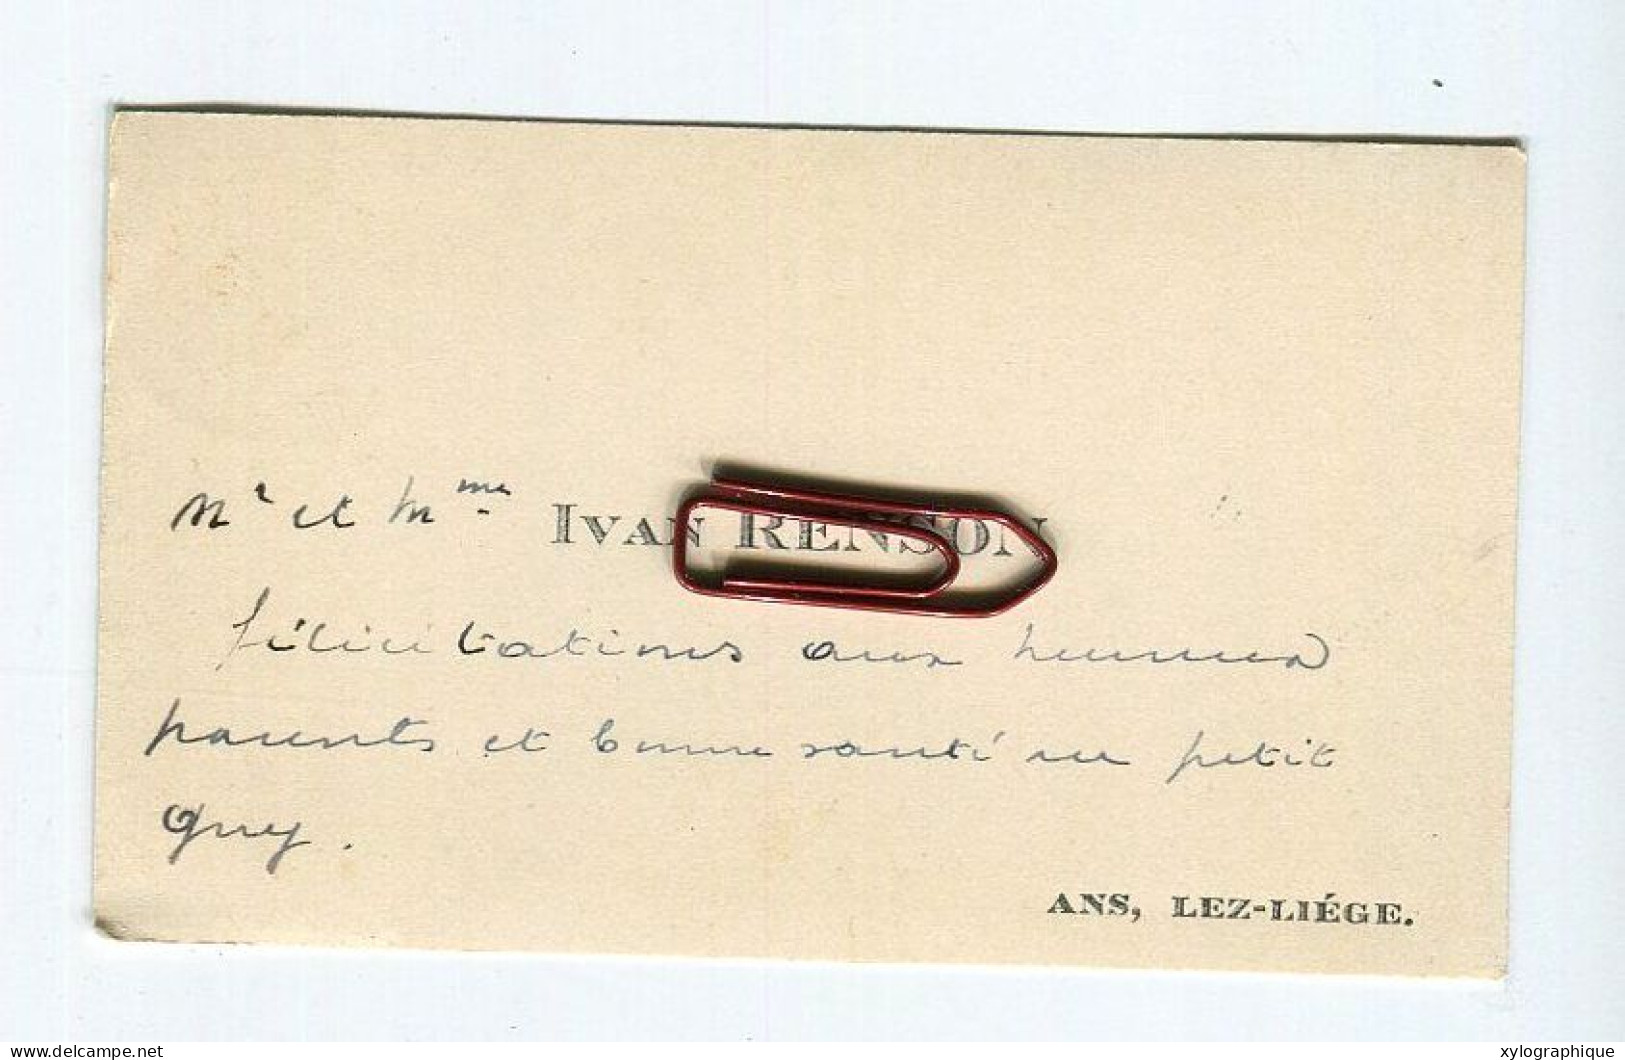 Mr et Mme. IVAN RENSON
félicitations aux heureux
parents et bonne santé au petit
Guy.
ANS, LEZ-LIÉGE.
www.delcampe.net
xylographique